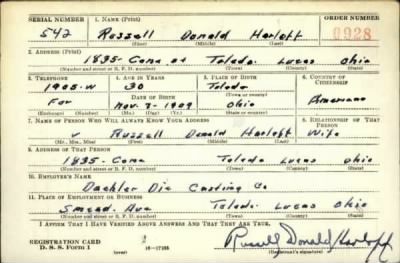 SERIAL NUMBER 1. NAME (Print) ORDER NUMBER
542 Russell Donald Harloff 0928
(First) (Middle) (Last)
2. ADDRESS (Print)
1835- Cone St Toledo Lucas Ohio
(Number and street or R. F. D. number) (Town) (County) (State)
3. TELEPHONE 4. AGE IN YEARS 5. PLACE OF BIRTH 6. COUNTRY OF CITIZENSHIP
1905-W 30 Toledo
DATE OF BIRTH (Town or county)
For Nov. 7- 1909 Ohio Americano
(Exchange) (No.) (Mo.) (Day) (Yr.) (State or country)
7. NAME OF PERSON WHO WILL ALWAYS KNOW YOUR ADDRESS 8. RELATIONSHIP OF THAT PERSON
v Russell Donald Harloff Wife
(Mr., Mrs., Miss) (First) (Middle) (Last)
9. ADDRESS OF THAT PERSON
1835- Cone Toledo Lucas Ohio
(Number and street or R. F. D. number) (Town) (County) (State)
10. EMPLOYER'S NAME
Daehler Die Casting Co
11. PLACE OF EMPLOYMENT OR BUSINESS
Smead. Ave Toledo. Lucas Ohio
(Number and street or R. F. D. number) (Town) (County) (State)
I AFFIRM THAT I HAVE VERIFIED ABOVE ANSWERS AND THAT THEY ARE TRUE.
REGISTRATION CARD
D. S. S. Form 1 (over) 16-17105 Russell Donald Harloff
(Registrant's signature)